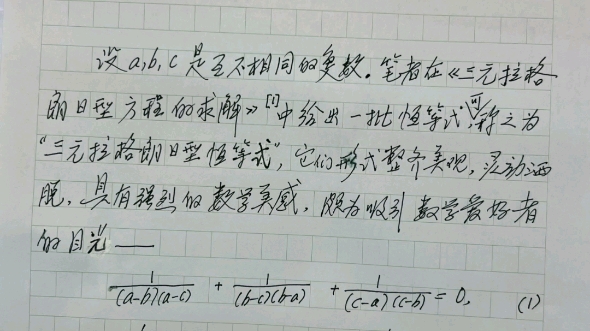 设a,b,c是互不相同的复数。笔者在《三元拉格
朗日型方程的求解》[1]中给出一批恒等式,可称之为
“三元拉格朗日型恒等式”,它们形式整齐美观,灵动洒
脱,具有强烈的数学美感,颇为吸引数学爱好者
的目光——
1/((a-b)(a-c)) + 1/((b-c)(b-a)) + 1/((c-a)(c-b)) = 0, (1)